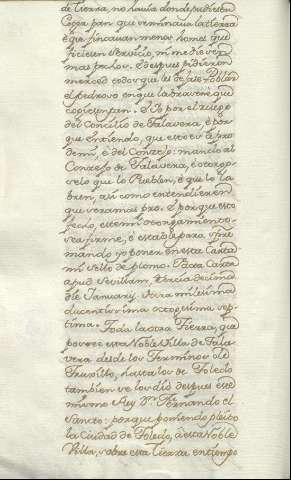 de Tierra, no havía donde pudiesen
Coger pan que verminava la tierra
é que fincavan menos homes que
ficiesen servicio, ni me diesen
mas pechos. Después pidieron
merced
el Pedroso en que labrasen é que
cogiesen pan. Yo por el ruego
del Concilio de Talavera, é por
que entiendo, que esto es á pro
de mi, é del Conzejo: mando al
Conzejo de Talavera, é otorgo
velo que lo Pueblen, é que lo la
bren, así como entendieren
que será mas pro. É porque esto
fecho, este mi otorgamiento
sea firme, é estable para siempre
mando yo poner en esta Carta
mi sello de plomo. Facta Carta
apud Sevillam, tercia decima
die Januarij. Aera milesima
ducentesima octogesima sep
tima. Toda la otra Tierra, que
posee esta Noble Villa de Tala
vera desde los Terminos de
Truxillo, hasta los de Toledo
tambien se los dio despues este
mismo Rey Dn. Fernando el
Santo: porque poniendo pleito
la Ciudad de Toledo, á esta Noble
Villa, sobre esta Tierra en tiempo